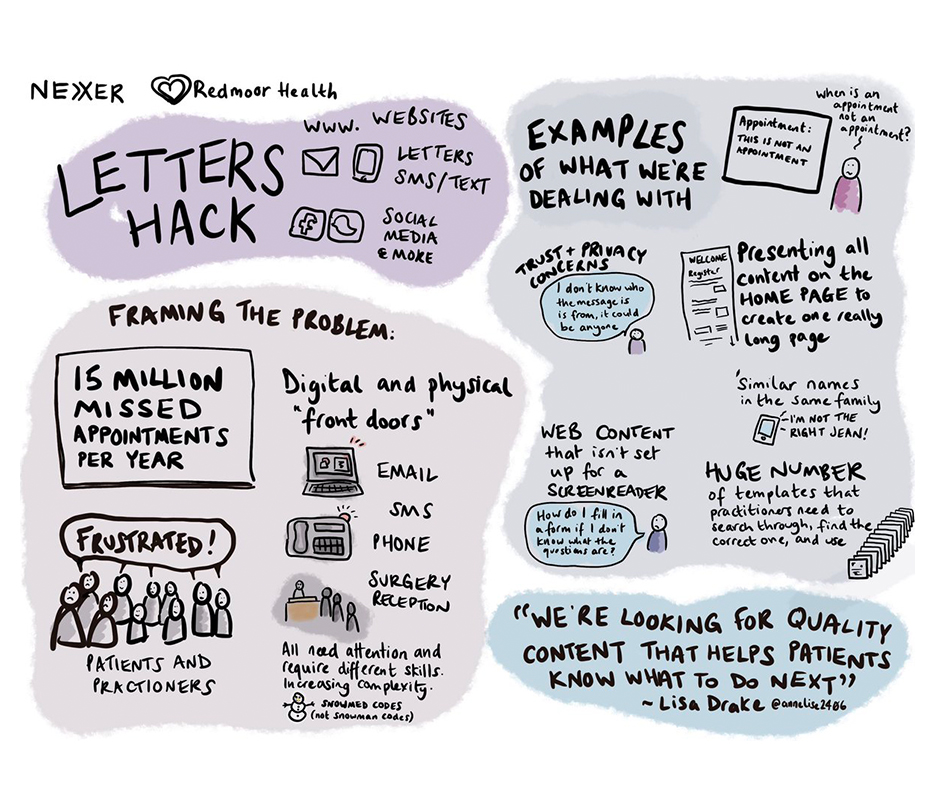 NEXER
Redmoor Health
LETTERS
HACK
WWW. WEBSITES
LETTERS
SMS/TEXT
SOCIAL
MEDIA
& MORE
FRAMING THE PROBLEM:
15 MILLION
MISSED
APPOINTMENTS
PER YEAR
FRUSTRATED!
PATIENTS AND
PRACTIONERS
Digital and physical
"front doors"
EMAIL
SMS
PHONE
SURGERY
RECEPTION
All need attention and
require different skills.
Increasing complexity.
SNOWMED CODES
(not snowman codes)
EXAMPLES
OF WHAT WE'RE
DEALING WITH
Appointment:
THIS IS NOT AN
APPOINTMENT
when is an
appointment
not an
appointment?
TRUST + PRIVACY
CONCERNS
I don't know who
the message is
from, it could
be anyone
WELCOME
Register
Presenting all
content on the
HOME PAGE to
create one really
long page
'Similar names
in the same family
I'M NOT THE
RIGHT JEAN!
WEB CONTENT
that isn't set
up for a
SCREENREADER
How do I fill in
a form if I don't
know what the
questions are?
HUGE NUMBER
of templates that
practitioners need to
search through, find the
correct one, and use
"WE'RE LOOKING FOR QUALITY
CONTENT THAT HELPS PATIENTS
KNOW WHAT TO DO NEXT"
~ Lisa Drake @annelise2406